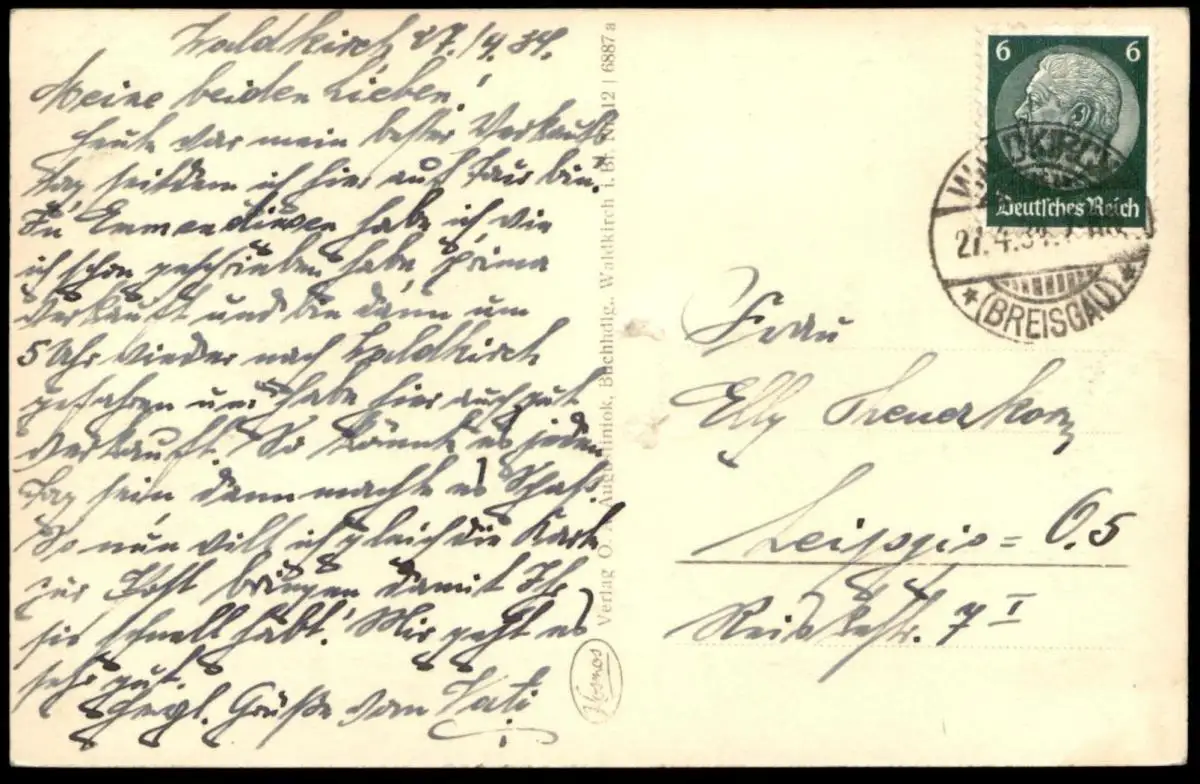 Waldkirch 27./4.34.
Meine beiden Lieben!
Heute war mein bester Verkaufs
tag seitdem ich hier auf Tour bin.
In Emmendingen habe ich wie
ich schon geschrieben habe prima
verkauft und bin dann um
5 Uhr wieder nach Waldkirch
gefahren und habe hier auch gut
verkauft. So könnte es jeden
Tag sein dann macht es Spaß.
So nun will ich gleich die Karte
zur Post bringen damit Ihr
sie schnell habt! Mir geht es
sehr gut.
Herzl. Grüße vom Vati
Verlag O. Augustiniok, Buchhdlg., Waldkirch i. Br. 12 | 6887 a
Kosmos
6 6
Deutsches Reich
WALDKIRCH
27.4.34.
* (BREISGAU) *
Frau
Elly Theuerkorn
Leipzig = O.5
Reiskestr. 7 I